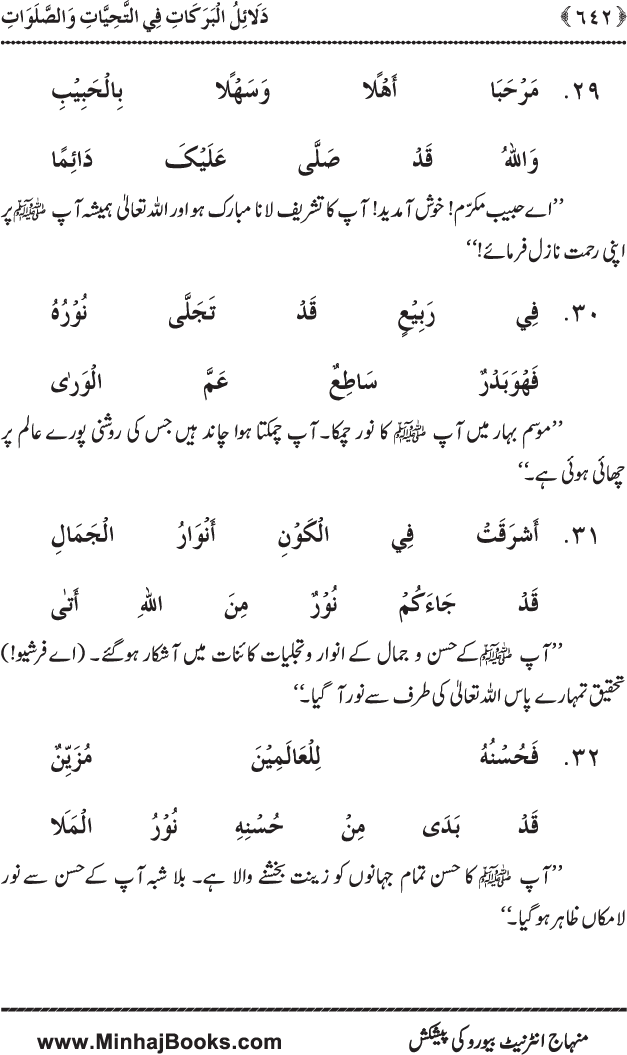 ﴿٦٤٢﴾ دَلَائِلُ الْبَرَكَاتِ فِي التَّحِيَّاتِ وَالصَّلَوَاتِ
٢٩. مَرْحَبَا أَهْلًا وَسَهْلًا بِالْحَبِيْبِ
وَاللهُ قَدْ صَلَّى عَلَيْکَ دَائِمًا
’’اے حبیب مکرّم! خوش آمدید! آپ کا تشریف لانا مبارک ہو اور اللہ تعالیٰ ہمیشہ آپ ﷺ پر
اپنی رحمت نازل فرمائے!‘‘
٣٠. فِي رَبِيْعٍ قَدْ تَجَلَّى نُوْرُهُ
فَهْوَبَدْرٌ سَاطِعٌ عَمَّ الْوَرٰى
’’موسم بہار میں آپ ﷺ کا نور چمکا۔ آپ چمکتا ہوا چاند ہیں جس کی روشنی پورے عالم پر
چھائی ہوئی ہے۔‘‘
٣١. أَشرَقَتْ فِي الْكَوْنِ أَنْوَارُ الْجَمَالِ
قَدْ جَاءَكُمْ نُوْرٌ مِنَ اللهِ أَتٰى
’’آپ ﷺ کے حسن و جمال کے انوار و تجلیات کائنات میں آشکار ہوگئے۔ (اے فرشیو!)
تحقیق تمہارے پاس اللہ تعالیٰ کی طرف سے نور آ گیا۔‘‘
٣٢. فَحُسْنُهُ لِلْعَالَمِيْنَ مُزَيِّنٌ
قَدْ بَدَى مِنْ حُسْنِهِ نُوْرُ الْمَلَا
’’آپ ﷺ کا حسن تمام جہانوں کو زینت بخشنے والا ہے۔ بلا شبہ آپ کے حسن سے نور
لامکاں ظاہر ہو گیا۔‘‘
منہاج انٹرنیٹ بیورو کی پیشکش www.MinhajBooks.com